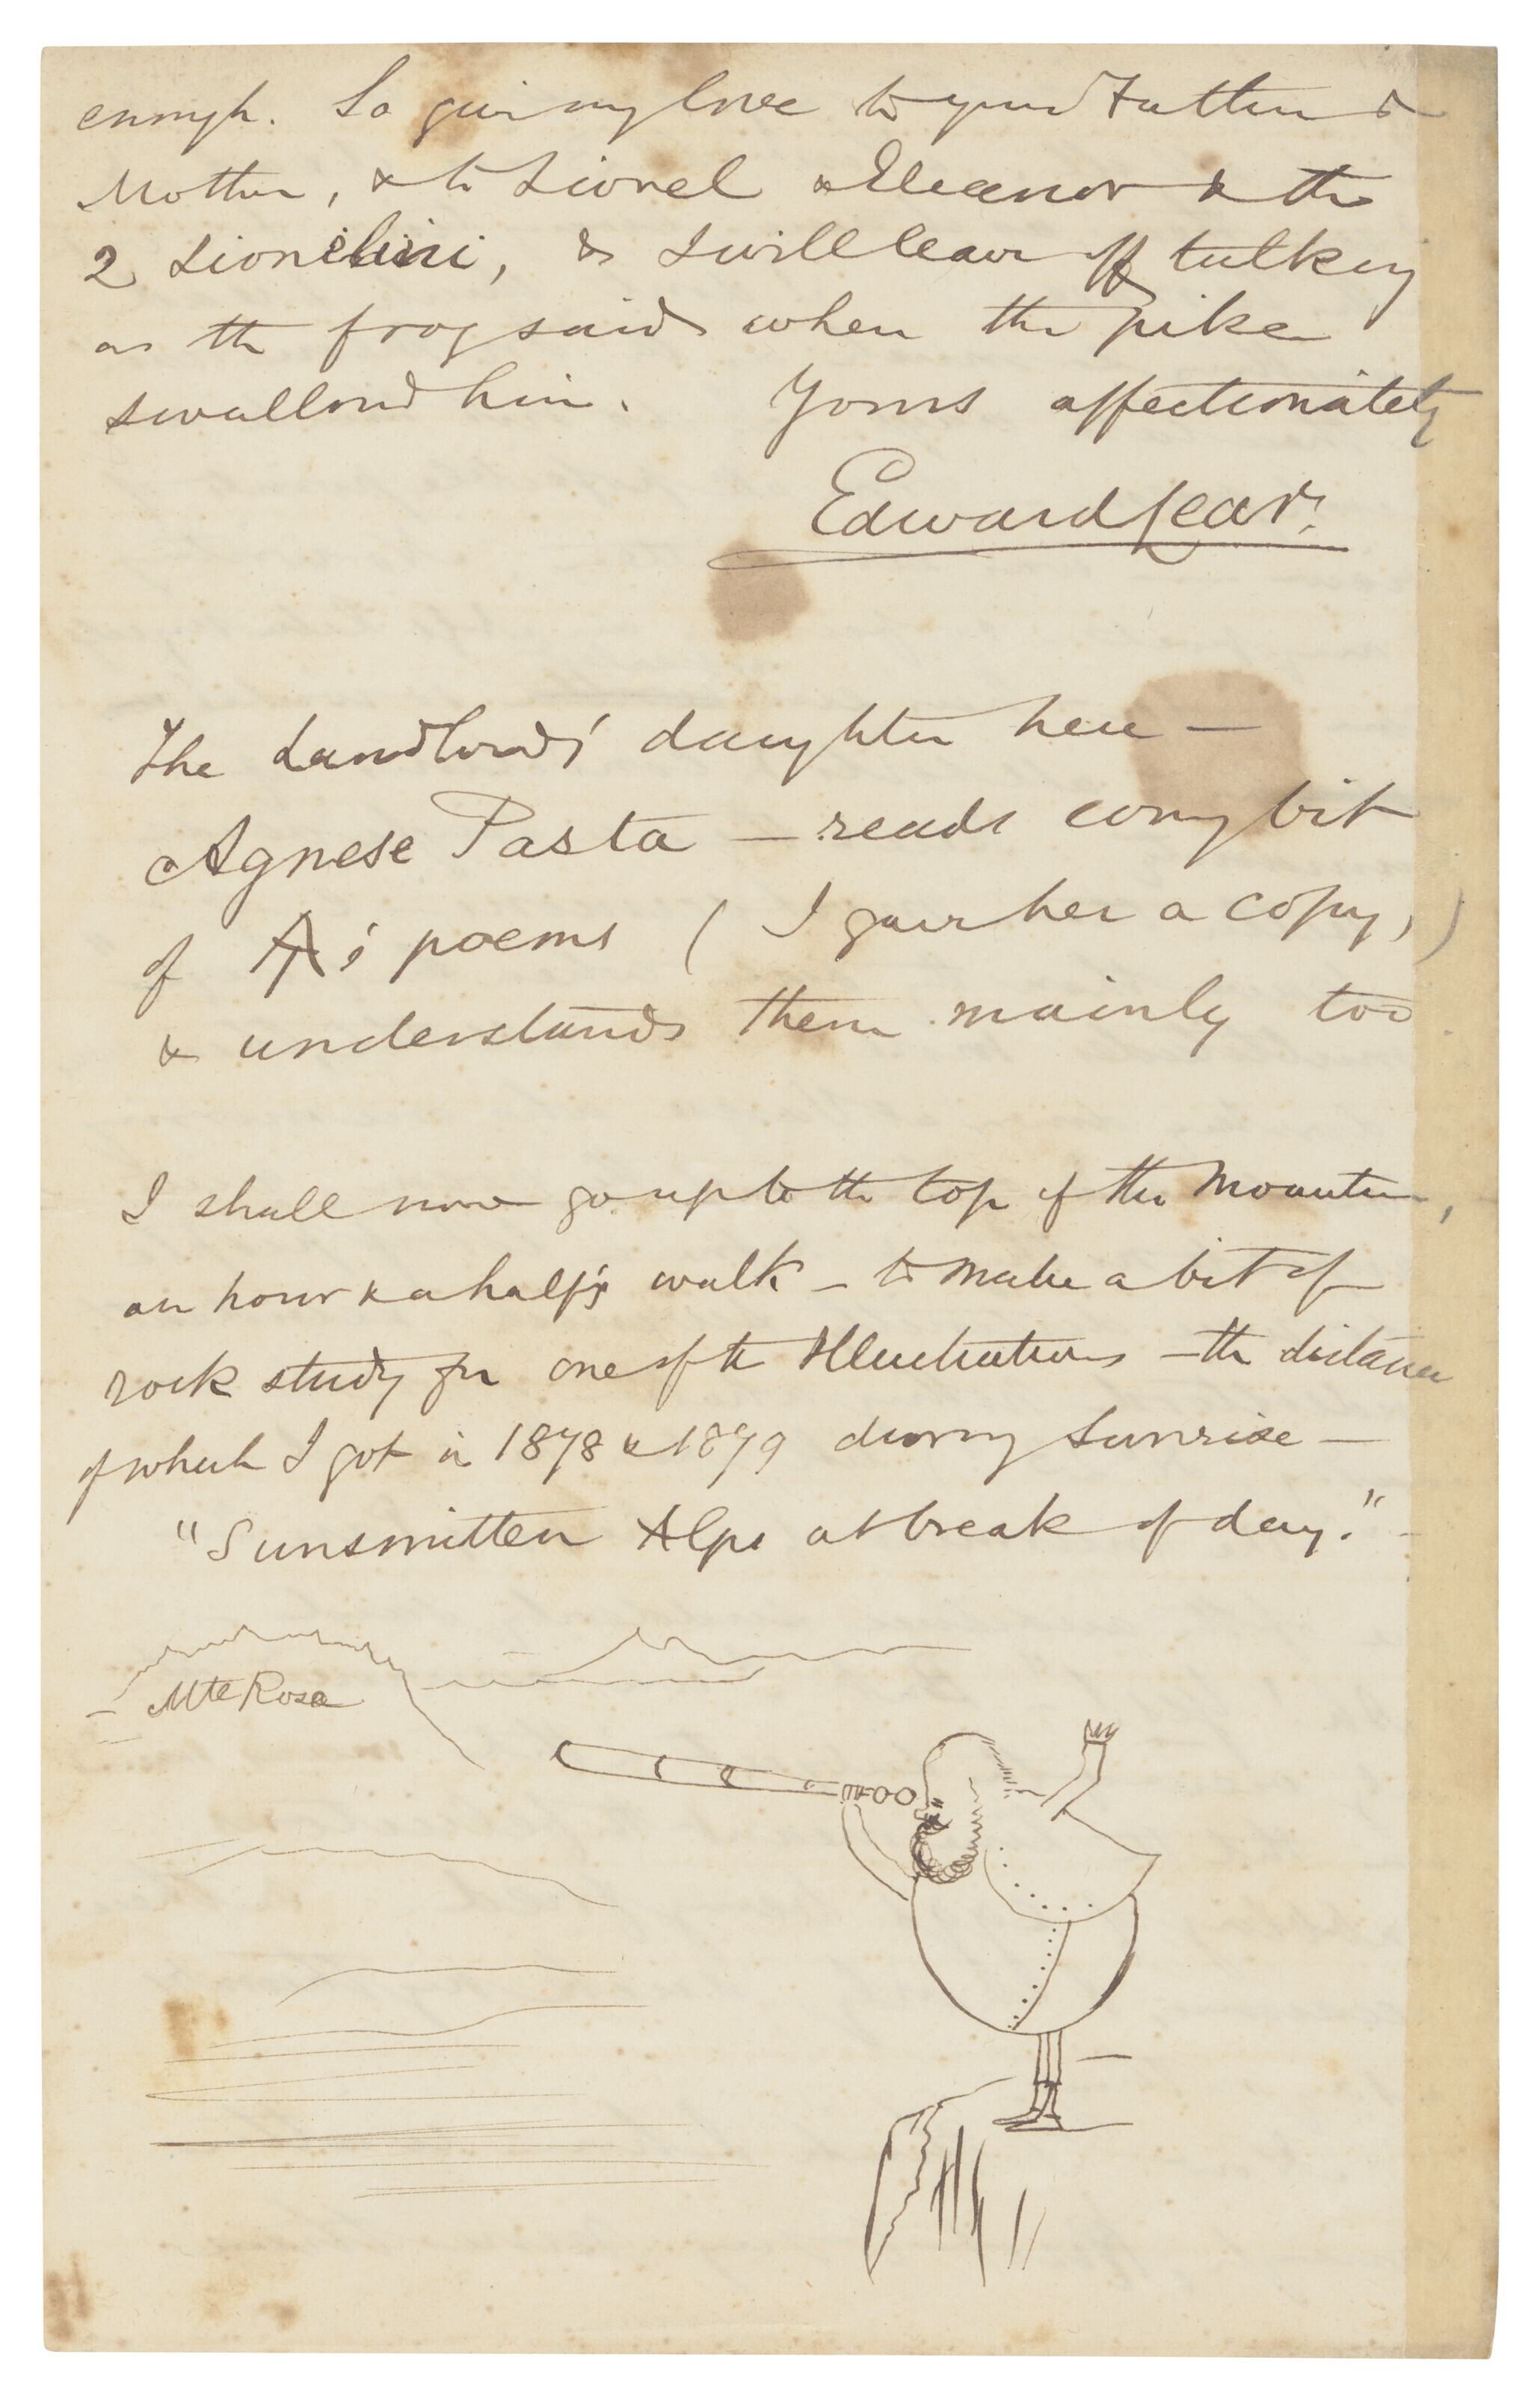 enough. So give my love to your Father &
Mother, & to Lionel & Eleanor & the
2 Lionelini, & I will leave off talking
as the frog said when the pike
swallowed him. Yours affectionately
Edward Lear.
The Landlord's daughter here —
Agnese Pasta — reads every bit
of AT's poems ( I gave her a copy, )
& understands them mainly too
I shall now go up to the top of the Mountain,
an hour & a half's walk — to make a bit of
rock study for one of the Illustrations — the distance
of which I got in 1878 & 1879 during Sunrise —
"Sunsmitten Alps at break of day."
Mte Rosa